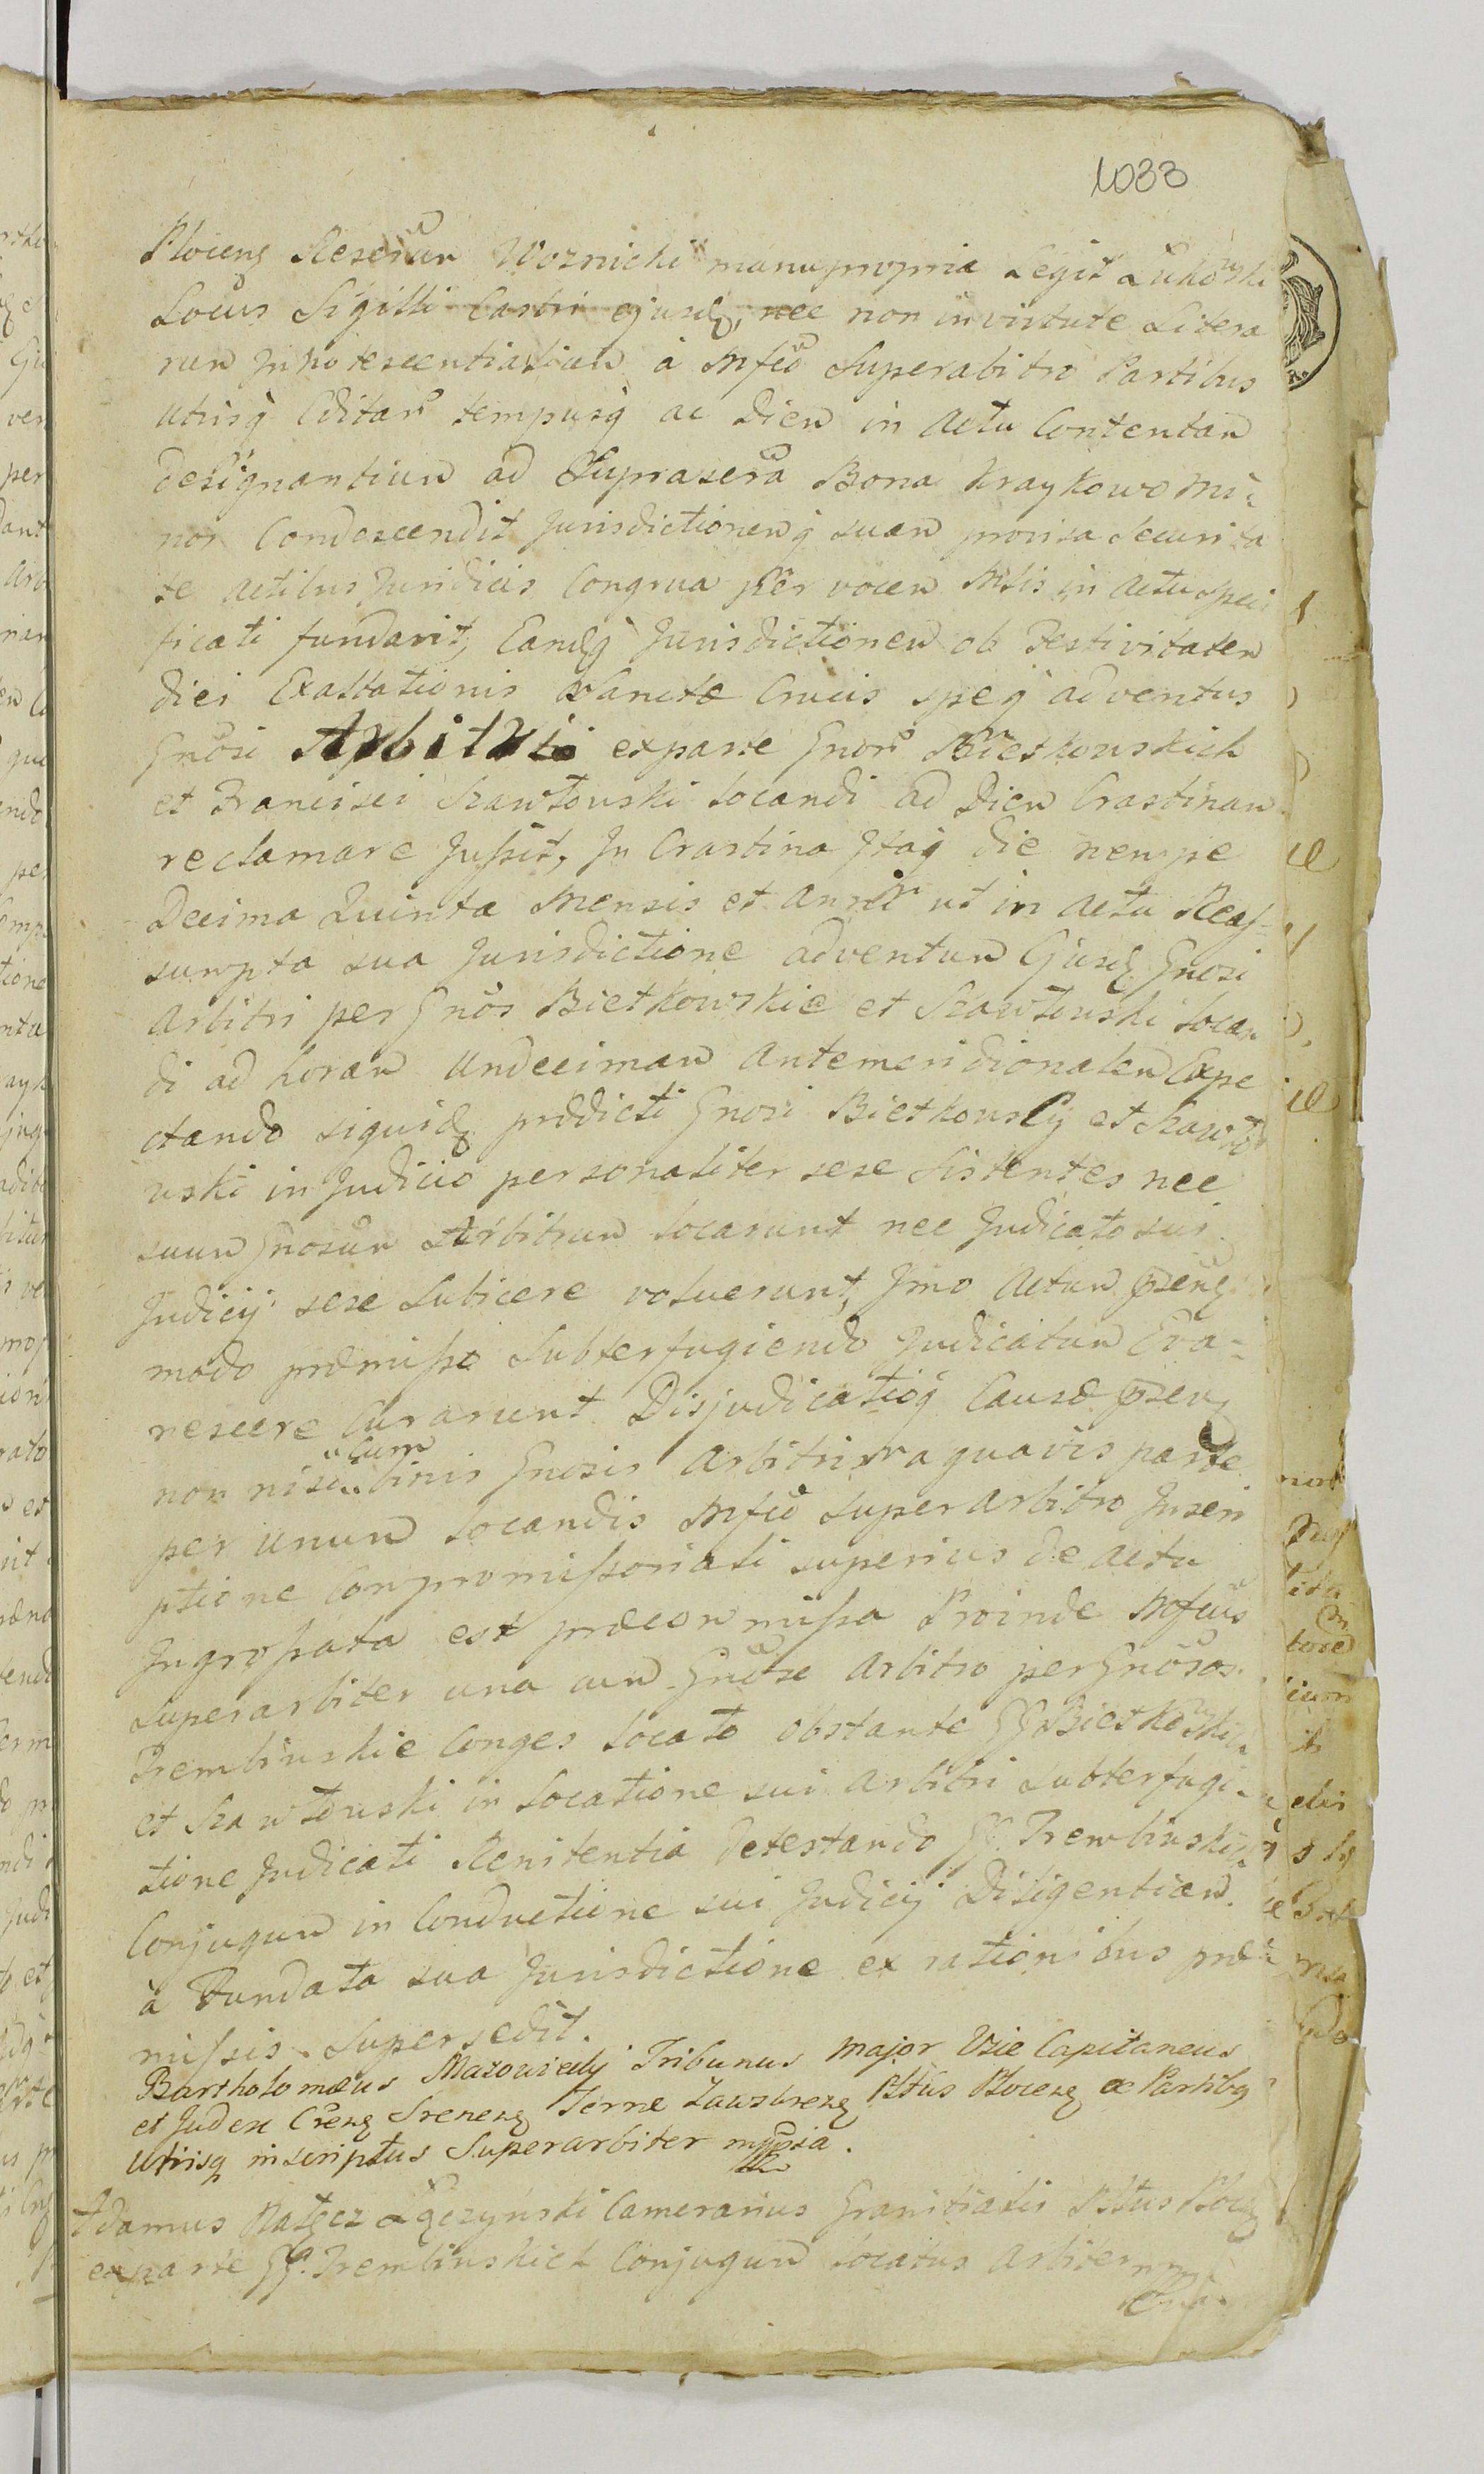 1033
Plocens Reserãn Woznicki manupropria Legit Zukowski
Locus Sigilli Castri ejusdꝫ, nec non in virtute Litera
rum Jnnotescentialium à Mfco Superabitro Partibus
utrisq̀ Editar̃ tempusq̀ ac Diem in Actu Contentam
designantium ad Suprascrã Bona Kraykowo Mi-
nor Condescendit Jurisdictionemq̀ suam provisa Securita
te Actibus Juridicis Congrua per vocem Mtlis in Actu speci
ficati fundavit, Eamdꝫq̀ Jurisdictionem ob Festivitatem
diei Exaltationis Sanctæ Crucis speq̀ adventus
Gnõsi Arbitri exparte Gnor̃ Bieŧkowskich
et Francisci Szawłowski locandi ad Diem Crastinam
reclamare Jussit, Jn Crastina Jtaq̀ die nempe
Decima Quinta Mensis et Anni ut in Actu Reas-
sumpta sua Jurisdictione adventum Ejusdꝫ Gnosi
Arbitri per Gnõs Bietkowskie et Szawłowski locan
di ad horam Undecimam Antemeridionalem Expe
ctando siquidꝫ prædicti Gnosi Bietkowscy et Szawło
wski in Judicio personaliter sese Sistentes nec
suum Gnosũm Arbitrum locarunt nec Judicato sui
Judicij sese Subicere voluerunt, Jmo Actum pꝛẽnꝫ
modo præmisso Subterfugiendo Judicatum Eva-
nescere Curarunt Disjudicatioq̀ Causæ pꝛẽnꝫ
non nisi cum binis Gnosis Arbitris a quavis parte
per unum locandis Mfco Superarbitro Jnscri
ptione Compromissoriali superius de actu
Jngrossata est præcommissa Proinde Mfcus
Superarbiter una cum Gnõso Arbitro per Gnõsos
Trembinskie Conges locato obstante GG Bietkowskich
et Szawłowski in locatione sui Arbitri Subterfugi-
tione Judicati Renitentia Detestando GG. Trembinskich
Conjugum in Conductione sui Judicij Diligentiam
à Fundata sua Jurisdictione ex rationibus præ-
missis Supersedit.
Bartholomæus Mazowiecki Tribunus Major Vice Capitaneus
et Judex Crenꝫ Srenenꝫ Terræ Zawskrenꝫ Pltũs Plocenꝫ a Partibꝫ
Utrisq̀ inscriptus Superarbiter mppria.
Adamus Nałęcz Łączynski Camerarius Granitialis Pltus Plocenꝫ
exparte GG. Trembinskich Conjugum locatus Arbiter mp